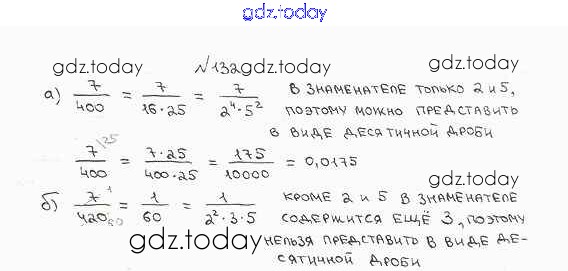 gdz.today
gdz.today №132 gdz.today gdz.today
а) 7/400 = 7/(16·25) = 7/(2⁴·5²) В ЗНАМЕНАТЕЛЕ ТОЛЬКО 2 и 5,
ПОЭТОМУ МОЖНО ПРЕДСТАВИТЬ
В ВИДЕ ДЕСЯТИЧНОЙ ДРОБИ
7/400 ^25 = 7·25/(400·25) = 175/10000 = 0,0175
gdz.today
б) 7 ¹/420 60 = 1/60 = 1/(2²·3·5) КРОМЕ 2 и 5 В ЗНАМЕНАТЕЛЕ
СОДЕРЖИТСЯ ЕЩЁ 3, ПОЭТОМУ
gdz.today НЕЛЬЗЯ ПРЕДСТАВИТЬ В ВИДЕ ДЕ-
СЯТИЧНОЙ ДРОБИ